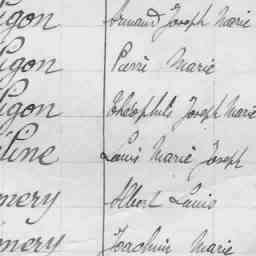 igon Armand Joseph Marie
igon Pierre Marie
igon Théophile Joseph Marie
line Louis Marie Joseph
mery Albert Louis
mery Joachim Marie